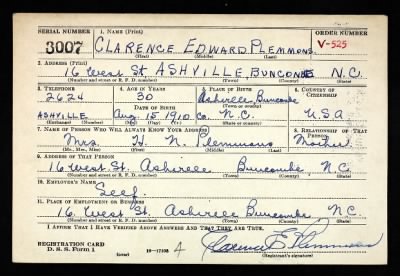 SERIAL NUMBER 1. NAME (Print) ORDER NUMBER
3007 CLARENCE EDWARD PLEMMONS V-525
(First) (Middle) (Last)
2. ADDRESS (Print)
16 West St. ASHVILLE, BUNCOMBE N.C.
(Number and street or R. F. D. number) (Town) (County) (State)
3. TELEPHONE 4. AGE IN YEARS 5. PLACE OF BIRTH 6. COUNTRY OF CITIZENSHIP
2624 30 Asheville, Buncombe
DATE OF BIRTH
ASHVILLE Aug 15 1910 Co. N.C. U.S.A.
(Exchange) (Number) (Mo.) (Day) (Yr.) (State or country)
7. NAME OF PERSON WHO WILL ALWAYS KNOW YOUR ADDRESS 8. RELATIONSHIP OF THAT PERSON
Mrs. H. N. Plemmons Mother
(Mr., Mrs., Miss) (First) (Middle) (Last)
9. ADDRESS OF THAT PERSON
16 West St. Asheville Buncombe, N.C.
(Number and street or R. F. D. number) (Town) (County) (State)
10. EMPLOYER'S NAME
Self
11. PLACE OF EMPLOYMENT OR BUSINESS
16 West St. Asheville Buncombe, N.C.
(Number and street or R. F. D. number) (Town) (County) (State)
I AFFIRM THAT I HAVE VERIFIED ABOVE ANSWERS AND THAT THEY ARE TRUE.
REGISTRATION CARD
D. S. S. Form 1 16-17105 Clarence E Plemmons
(over) (Registrant's signature)